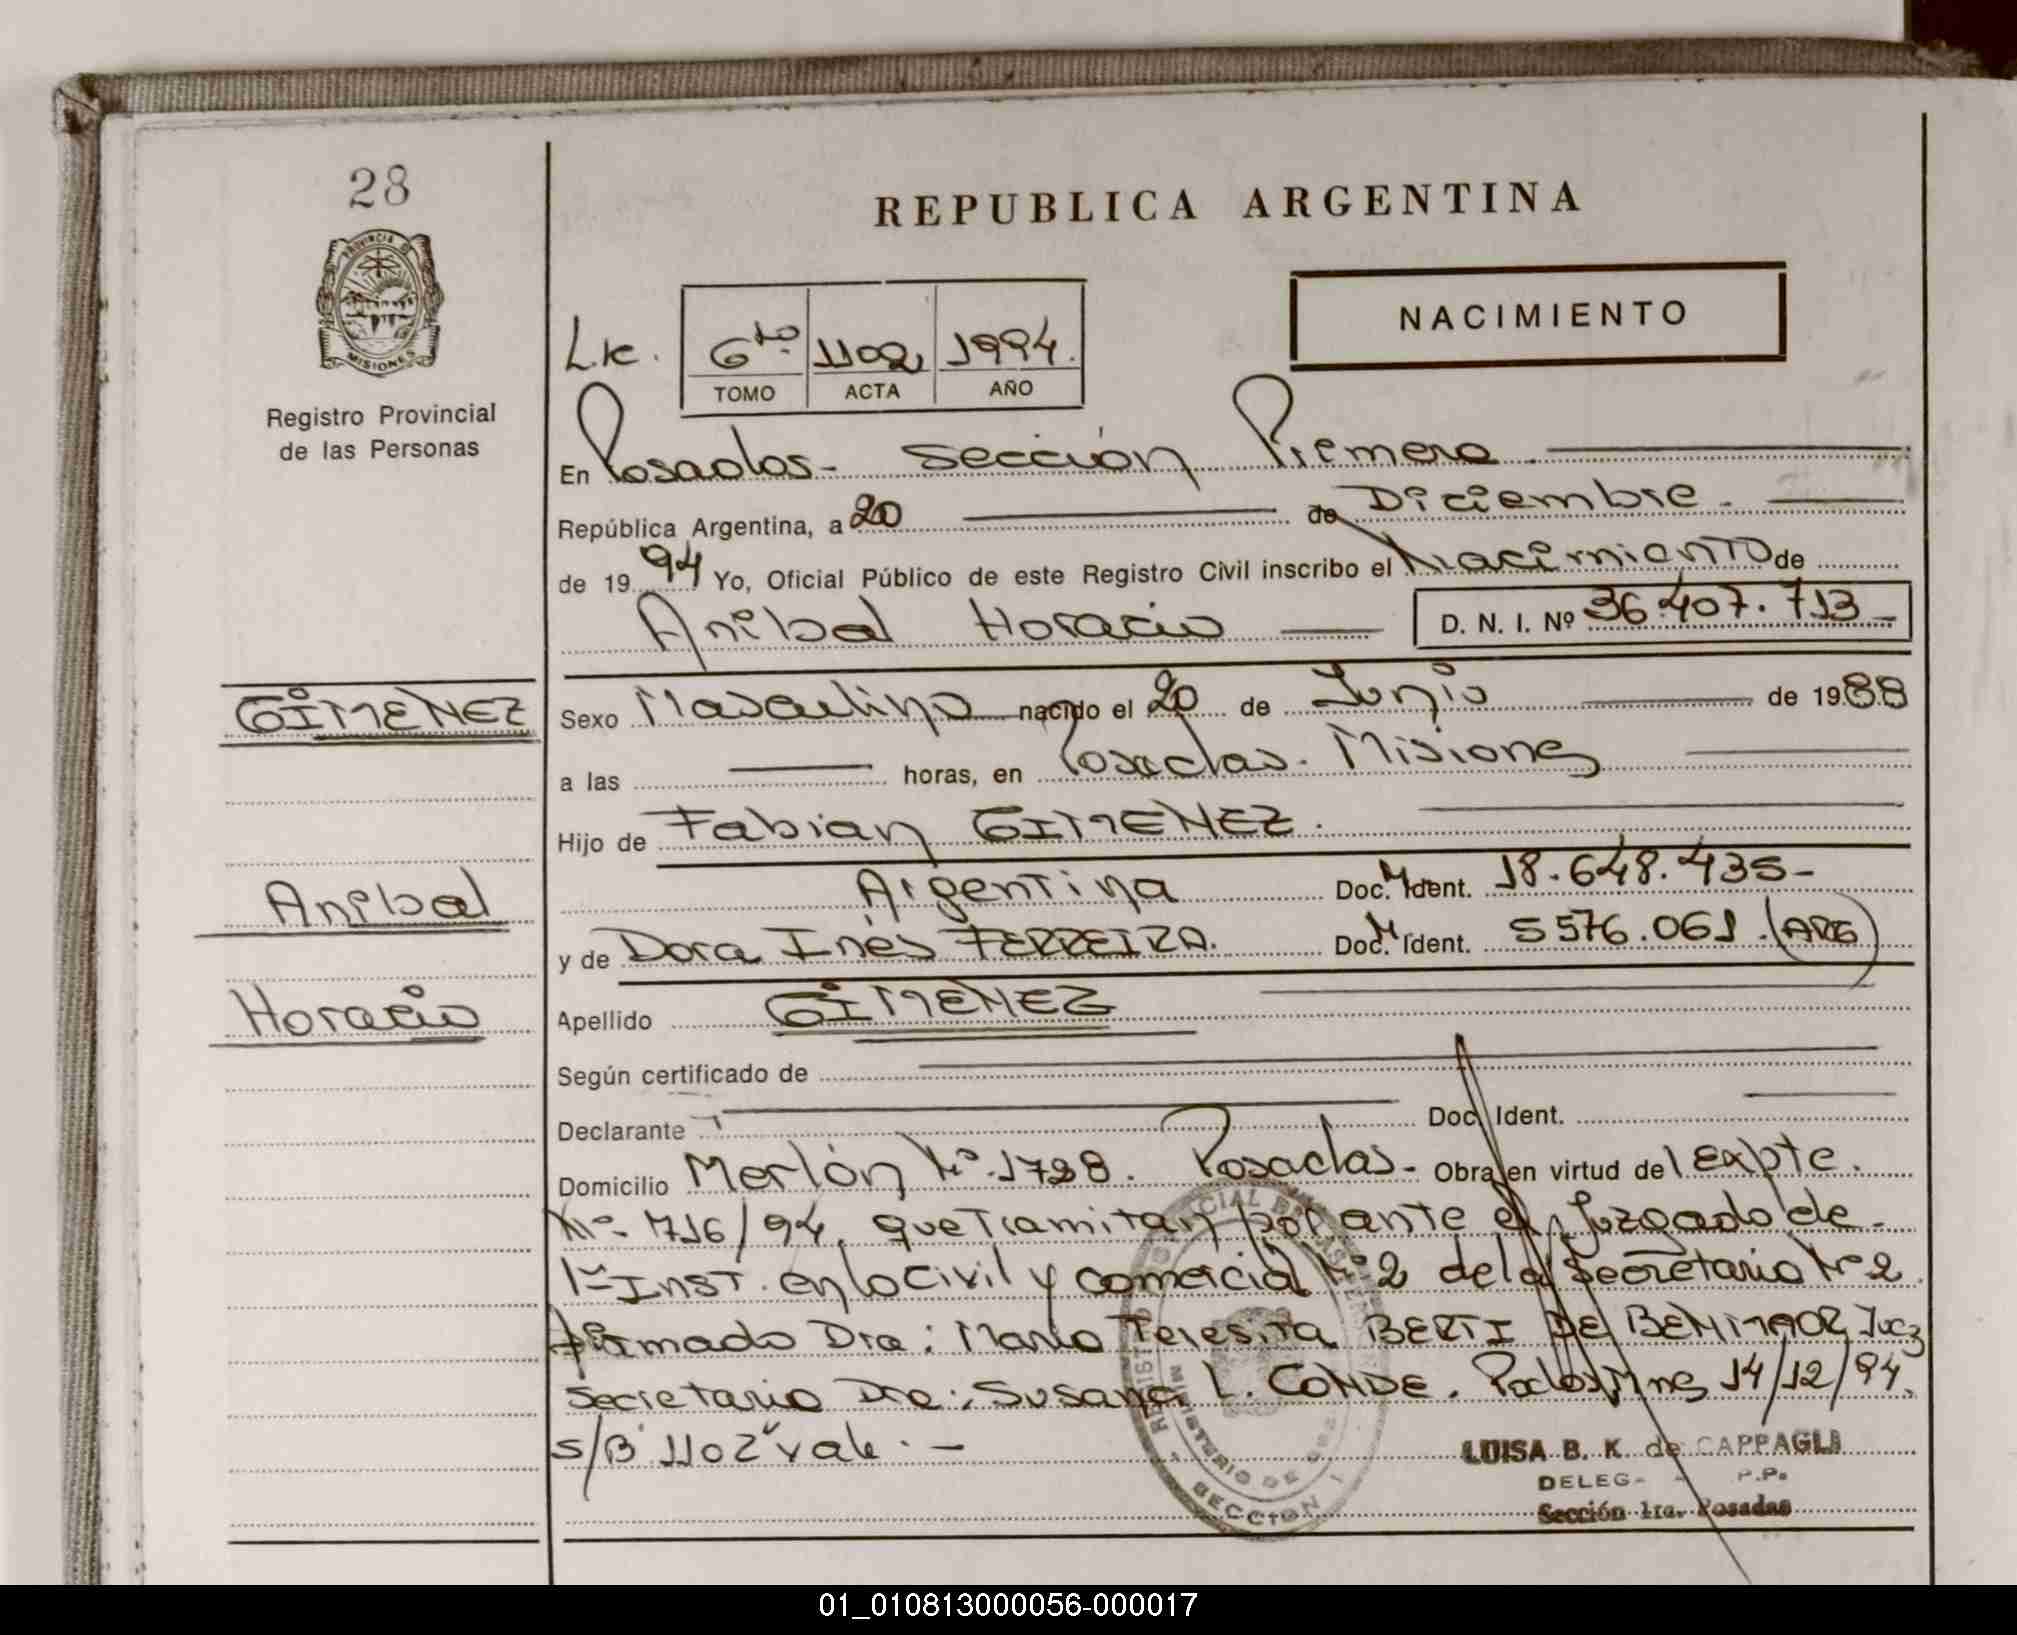 28
PROVINCIA DE
MISIONES
Registro Provincial
de las Personas
REPUBLICA ARGENTINA
NACIMIENTO
6to 1102 1994.
TOMO ACTA AÑO
En Posadas - Sección Primera
República Argentina, a 20 de Diciembre.
de 1994 Yo, Oficial Público de este Registro Civil inscribo el Nacimiento de
Anibal Horacio D. N. I. Nº 36.407.713
GIMENEZ
Sexo Masculino nacido el 20 de Junio de 1988
a las horas, en Posadas. Misiones
Hijo de Fabian GIMENEZ.
Anibal
Argentina Doc. Ident. 18.648.435-
y de Dora Inés FERREIRA. Doc. Ident. 5576.061. (ARG)
Horacio
Apellido GIMENEZ
Según certificado de
Declarante Doc. Ident.
Domicilio Merlón Nº 1728. Posadas. Obra en virtud del Expte.
Nº 716/94. que tramitan por ante el Juzgado de
1ra Inst. en lo Civil y Comercial Nº 2 de la Secretaria Nº 2
firmado Dra: Maria Teresita BERTI DE BENMAOR Juez
Secretaria Dra: Susana L. CONDE. 14/12/94.
s/B "1102" vale. -
LUISA B. K. de CAPPAGLI
DELEG- P.P.
Sección 1ra. Posadas
SECCION 1
01_010813000056-000017